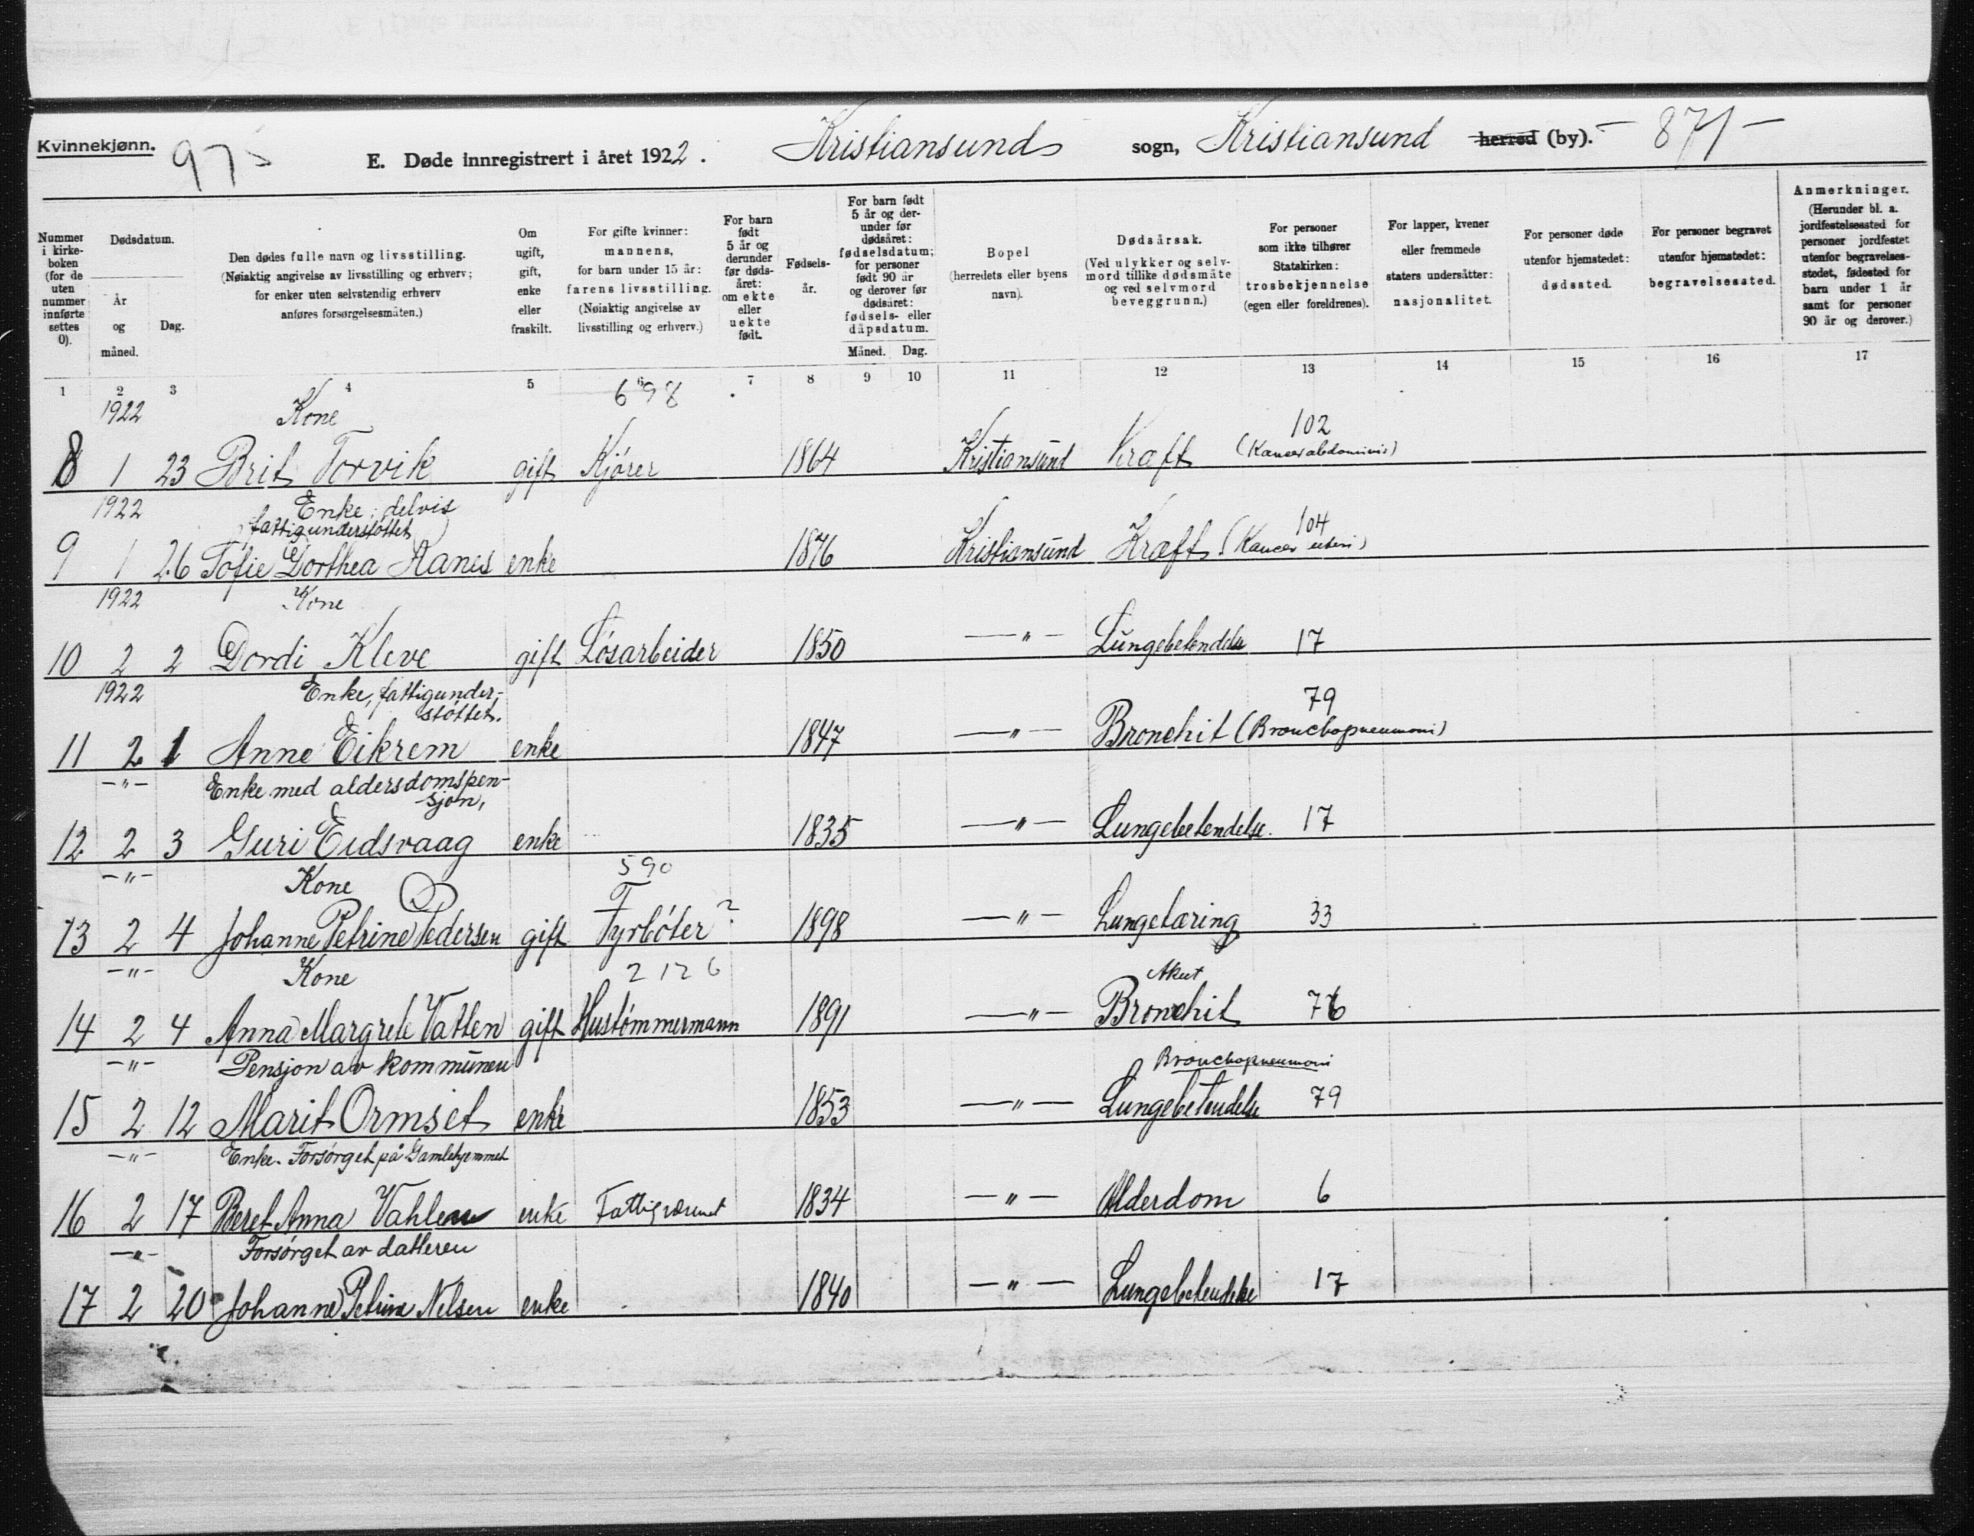 Kvinnekjønn.
97
E. Døde innregistrert i året 1922. Kristiansund sogn, Kristiansund herred (by). — 871 —
Nummer i kirkeboken (for de uten nummer innførte settes 0).
Dødsdatum.
År og måned.
Dag.
Den dødes fulle navn og livsstilling.
(Nøiaktig angivelse av livsstilling og erhverv; for enker uten selvstendig erhverv anføres forsørgelsesmåten.)
Om ugift, gift, enke eller fraskilt.
For gifte kvinner: mannens, for barn under 15 år: farens livsstilling.
(Nøiaktig angivelse av livsstilling og erhverv.)
For barn født 5 år og derunder før dødsåret: om ekte eller uekte født.
Fødselsår.
For barn født 5 år og derunder før dødsåret: fødselsdatum; for personer født 90 år og derover før dødsåret: fødsels- eller dåpsdatum.
Måned. Dag.
Bopel
(herredets eller byens navn).
Dødsårsak.
(Ved ulykker og selvmord tillike dødsmåte og ved selvmord beveggrunn.)
For personer som ikke tilhører Statskirken: trosbekjennelse (egen eller foreldrenes).
For lapper, kvener eller fremmede staters undersåtter: nasjonalitet.
For personer døde utenfor hjemstedet: dødssted.
For personer begravet utenfor hjemstedet: begravelsessted.
Anmerkninger.
(Herunder bl. a. jordfestelsessted for personer jordfestet utenfor begravelsesstedet, fødested for barn under 1 år samt for personer 90 år og derover.)
1 2 3 4 5 6 7 8 9 10 11 12 13 14 15 16 17
1922 Kone 698 102
8 1 23 Brit Torvik gift Kjører 1864 Kristiansund Kræft (Kancer abdominis)
1922 Enke, delvis
fattigunderstøttet 104
9 1 26 Tofie Dorthea Ranes enke 1876 Kristiansund Kræft (Kancer uteri)
1922 Kone
10 2 2 Dordi Kleve gift Løsarbeider 1850 —"— Lungebetendelse 17
1922 Enke, fattigunder-
støttet. 79
11 2 1 Anne Eikrem enke 1847 —"— Bronchit (Bronchopneumoni)
—"— Enke med aldersdomspen-
sjon,
12 2 3 Guri Eidsvaag enke 1835 —"— Lungebetendelse. 17
—"— Kone 590
13 2 4 Johanne Petrine Pedersen gift Fyrbøter ? 1898 —"— Lungetæring 33
—"— Kone 2126 Akut
14 2 4 Anna Margrete Vatten gift Hustømmermann 1891 —"— Bronchit 76
—"— Pensjon av kommunen Bronchopneumoni
15 2 12 Marit Ormset enke 1853 —"— Lungebetendelse 79
—"— Enke. Forsørget på Gamlehjemmet
16 2 17 Beret Anna Vahlen enke Fattigvæsenet 1834 —"— Alderdom 6
—"— Forsørget av datteren
17 2 20 Johanne Petrine Nelsen enke 1840 —"— Lungebetendelse 17